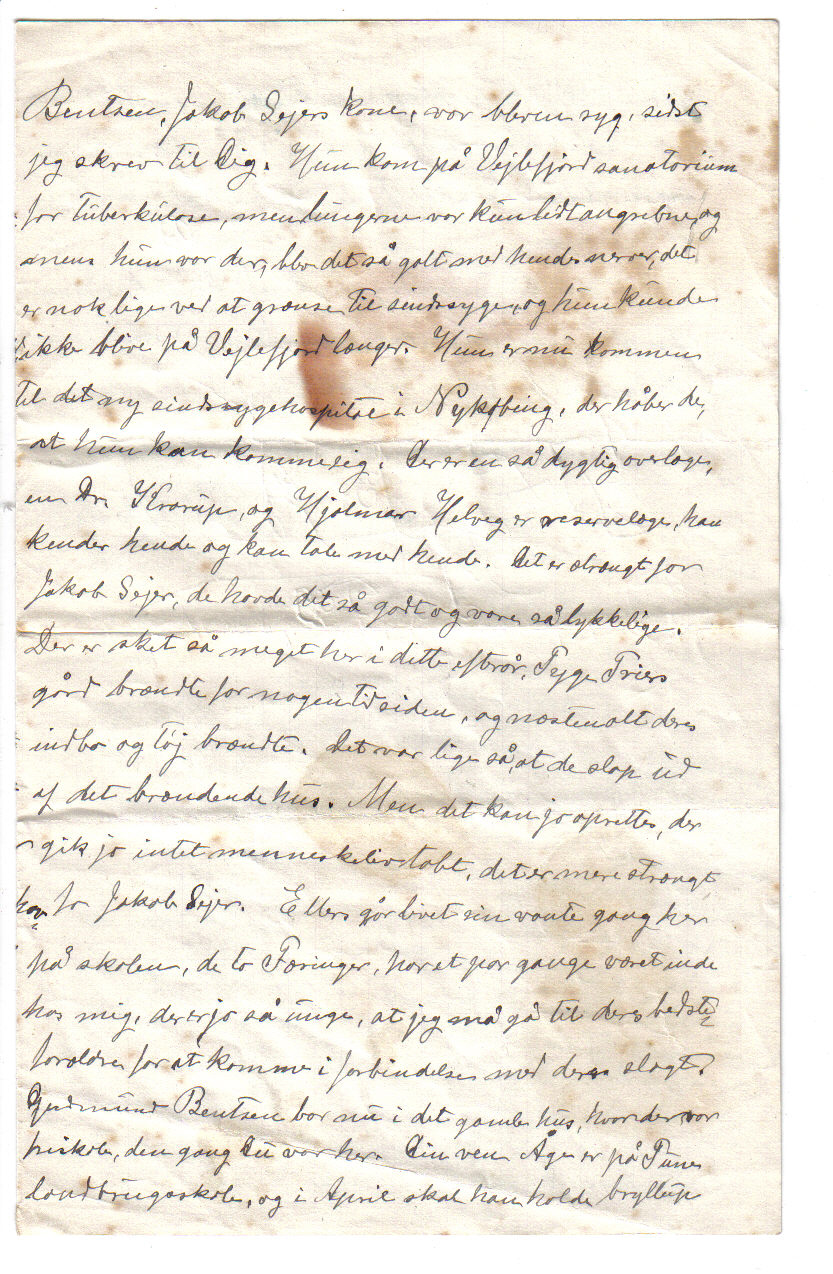 Bentsen, Jakob Sejers kone, var bleven syg, sidst
jeg skrev til Dig. Hun kom på Vejlefjord sanatorium
for tuberkulose, men lungerne var kun lidt angrebne, og
mens hun var der, blev det så galt med hendes nerver, det
er nok lige ved at grænse til sindssyge, og hun kunde
ikke blive på Vejlefjord længer. Hun er nu kommen
til det ny sindssygehospital i Nykøbing, der håber de,
at hun kan komme sig. Der er en så dygtig overlæge,
en Dr. Krarup, og Hjalmar Helveg er reservelæge, han
kender hende og kan tale med hende. Det er strængt for
Jakob Sejer, de havde det så godt og vare så lykkelige.
Der er sket så meget her i dette efterår, Tyge Triers
gård brændte for nogen tid siden, og næsten alt deres
indbo og tøj brændte. Det var lige så, at de slap ud
af det brændende hus. Men det kan jo oprettes, der
gik jo intet menneskeliv tabt, det er mere strængt
for Jakob Sejer. Ellers går livet sin vante gang her
på skolen, de to Færinger, har et par gange været inde
hos mig, der er jo så unge, at jeg må gå til deres bedste
forældre for at komme i forbindelse med deres slægt.
Gudmund Bentsen bor nu i det gamle hus, hvor der var
friskole, den gang Du var her. Din ven Åge er på Tune
landbrugsskole, og i April skal han holde bryllup